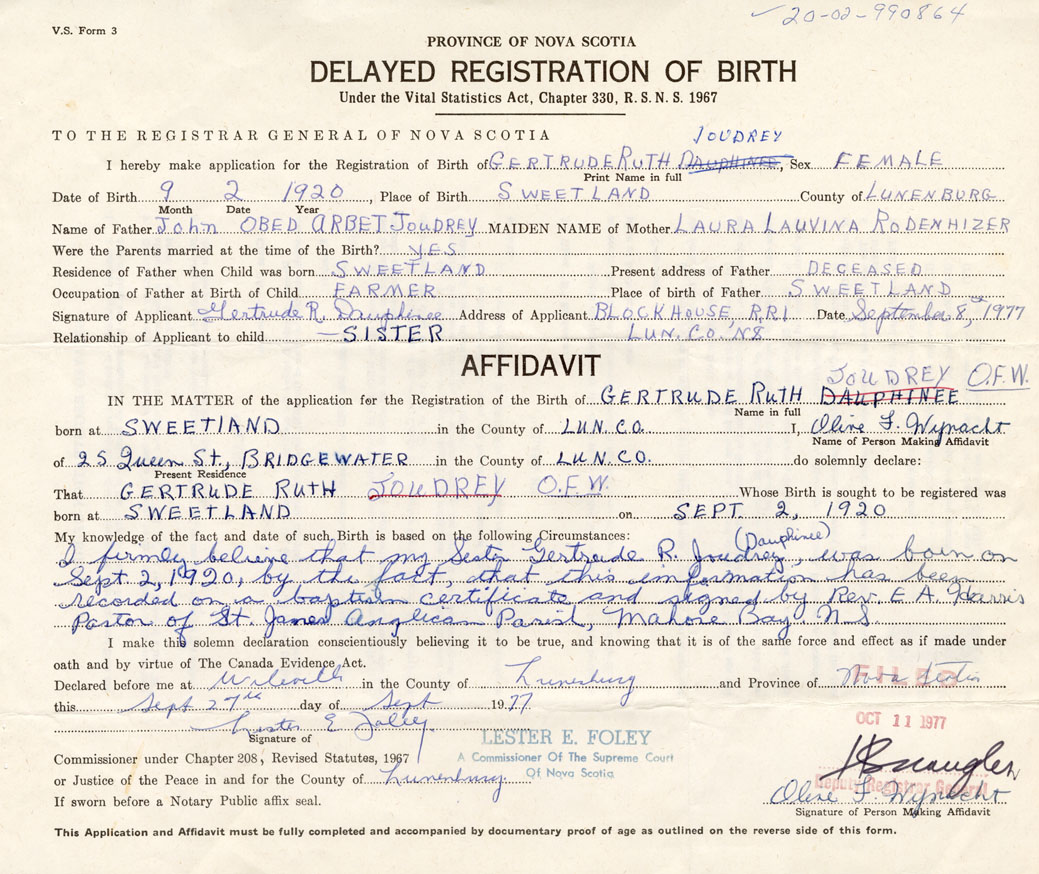 20-02-990864
V.S. Form 3
PROVINCE OF NOVA SCOTIA
DELAYED REGISTRATION OF BIRTH
Under the Vital Statistics Act, Chapter 330, R. S. N. S. 1967
TO THE REGISTRAR GENERAL OF NOVA SCOTIA
JOUDREY
I hereby make application for the Registration of Birth of GERTRUDE RUTH DAUPHINEE, Sex FEMALE
Print Name in full
Date of Birth 9 2 1920, Place of Birth SWEETLAND County of LUNENBURG
Month Date Year
Name of Father John OBED ARBET JOUDREY MAIDEN NAME of Mother LAURA LAUVINA RODENHIZER
Were the Parents married at the time of the Birth? YES
Residence of Father when Child was born SWEETLAND Present address of Father DECEASED
Occupation of Father at Birth of Child FARMER Place of birth of Father SWEETLAND
Signature of Applicant Gertrude R. Dauphinee Address of Applicant BLOCKHOUSE, RR1 Date September 8th, 1977
Relationship of Applicant to child — SISTER LUN. CO. NS
AFFIDAVIT
JOUDREY O.F.W.
IN THE MATTER of the application for the Registration of the Birth of GERTRUDE RUTH DAUPHINEE
Name in full
born at SWEETLAND in the County of LUN. CO. I, Olive F. Wynacht
Name of Person Making Affidavit
of 25 Queen St., BRIDGEWATER in the County of LUN. CO. do solemnly declare:
Present Residence
That GERTRUDE RUTH JOUDREY O.F.W. Whose Birth is sought to be registered was
born at SWEETLAND on SEPT 2, 1920
My knowledge of the fact and date of such Birth is based on the following Circumstances:
(Dauphinee)
I firmly believe that my Sester Gertrude R. Joudrey, was born on
Sept. 2, 1920, by the fact, that this information has been
recorded on a baptism certificate and signed by Rev. E A. Harris
Pastor of St. James Anglican Parish, Mahone Bay N S
I make this solemn declaration conscientiously believing it to be true, and knowing that it is of the same force and effect as if made under
oath and by virtue of The Canada Evidence Act.
Declared before me at Wileville in the County of Lunenburg and Province of Nova Scotia
FILED
this Sept 27th day of Sept 1977
OCT 11 1977
Lester E Foley
Signature of
LESTER E. FOLEY
A Commissioner Of The Supreme Court
Of Nova Scotia
Commissioner under Chapter 208, Revised Statutes, 1967
or Justice of the Peace in and for the County of Lunenburg
Deputy Registrar General
If sworn before a Notary Public affix seal.
Olive F. Wynacht
Signature of Person Making Affidavit
This Application and Affidavit must be fully completed and accompanied by documentary proof of age as outlined on the reverse side of this form.